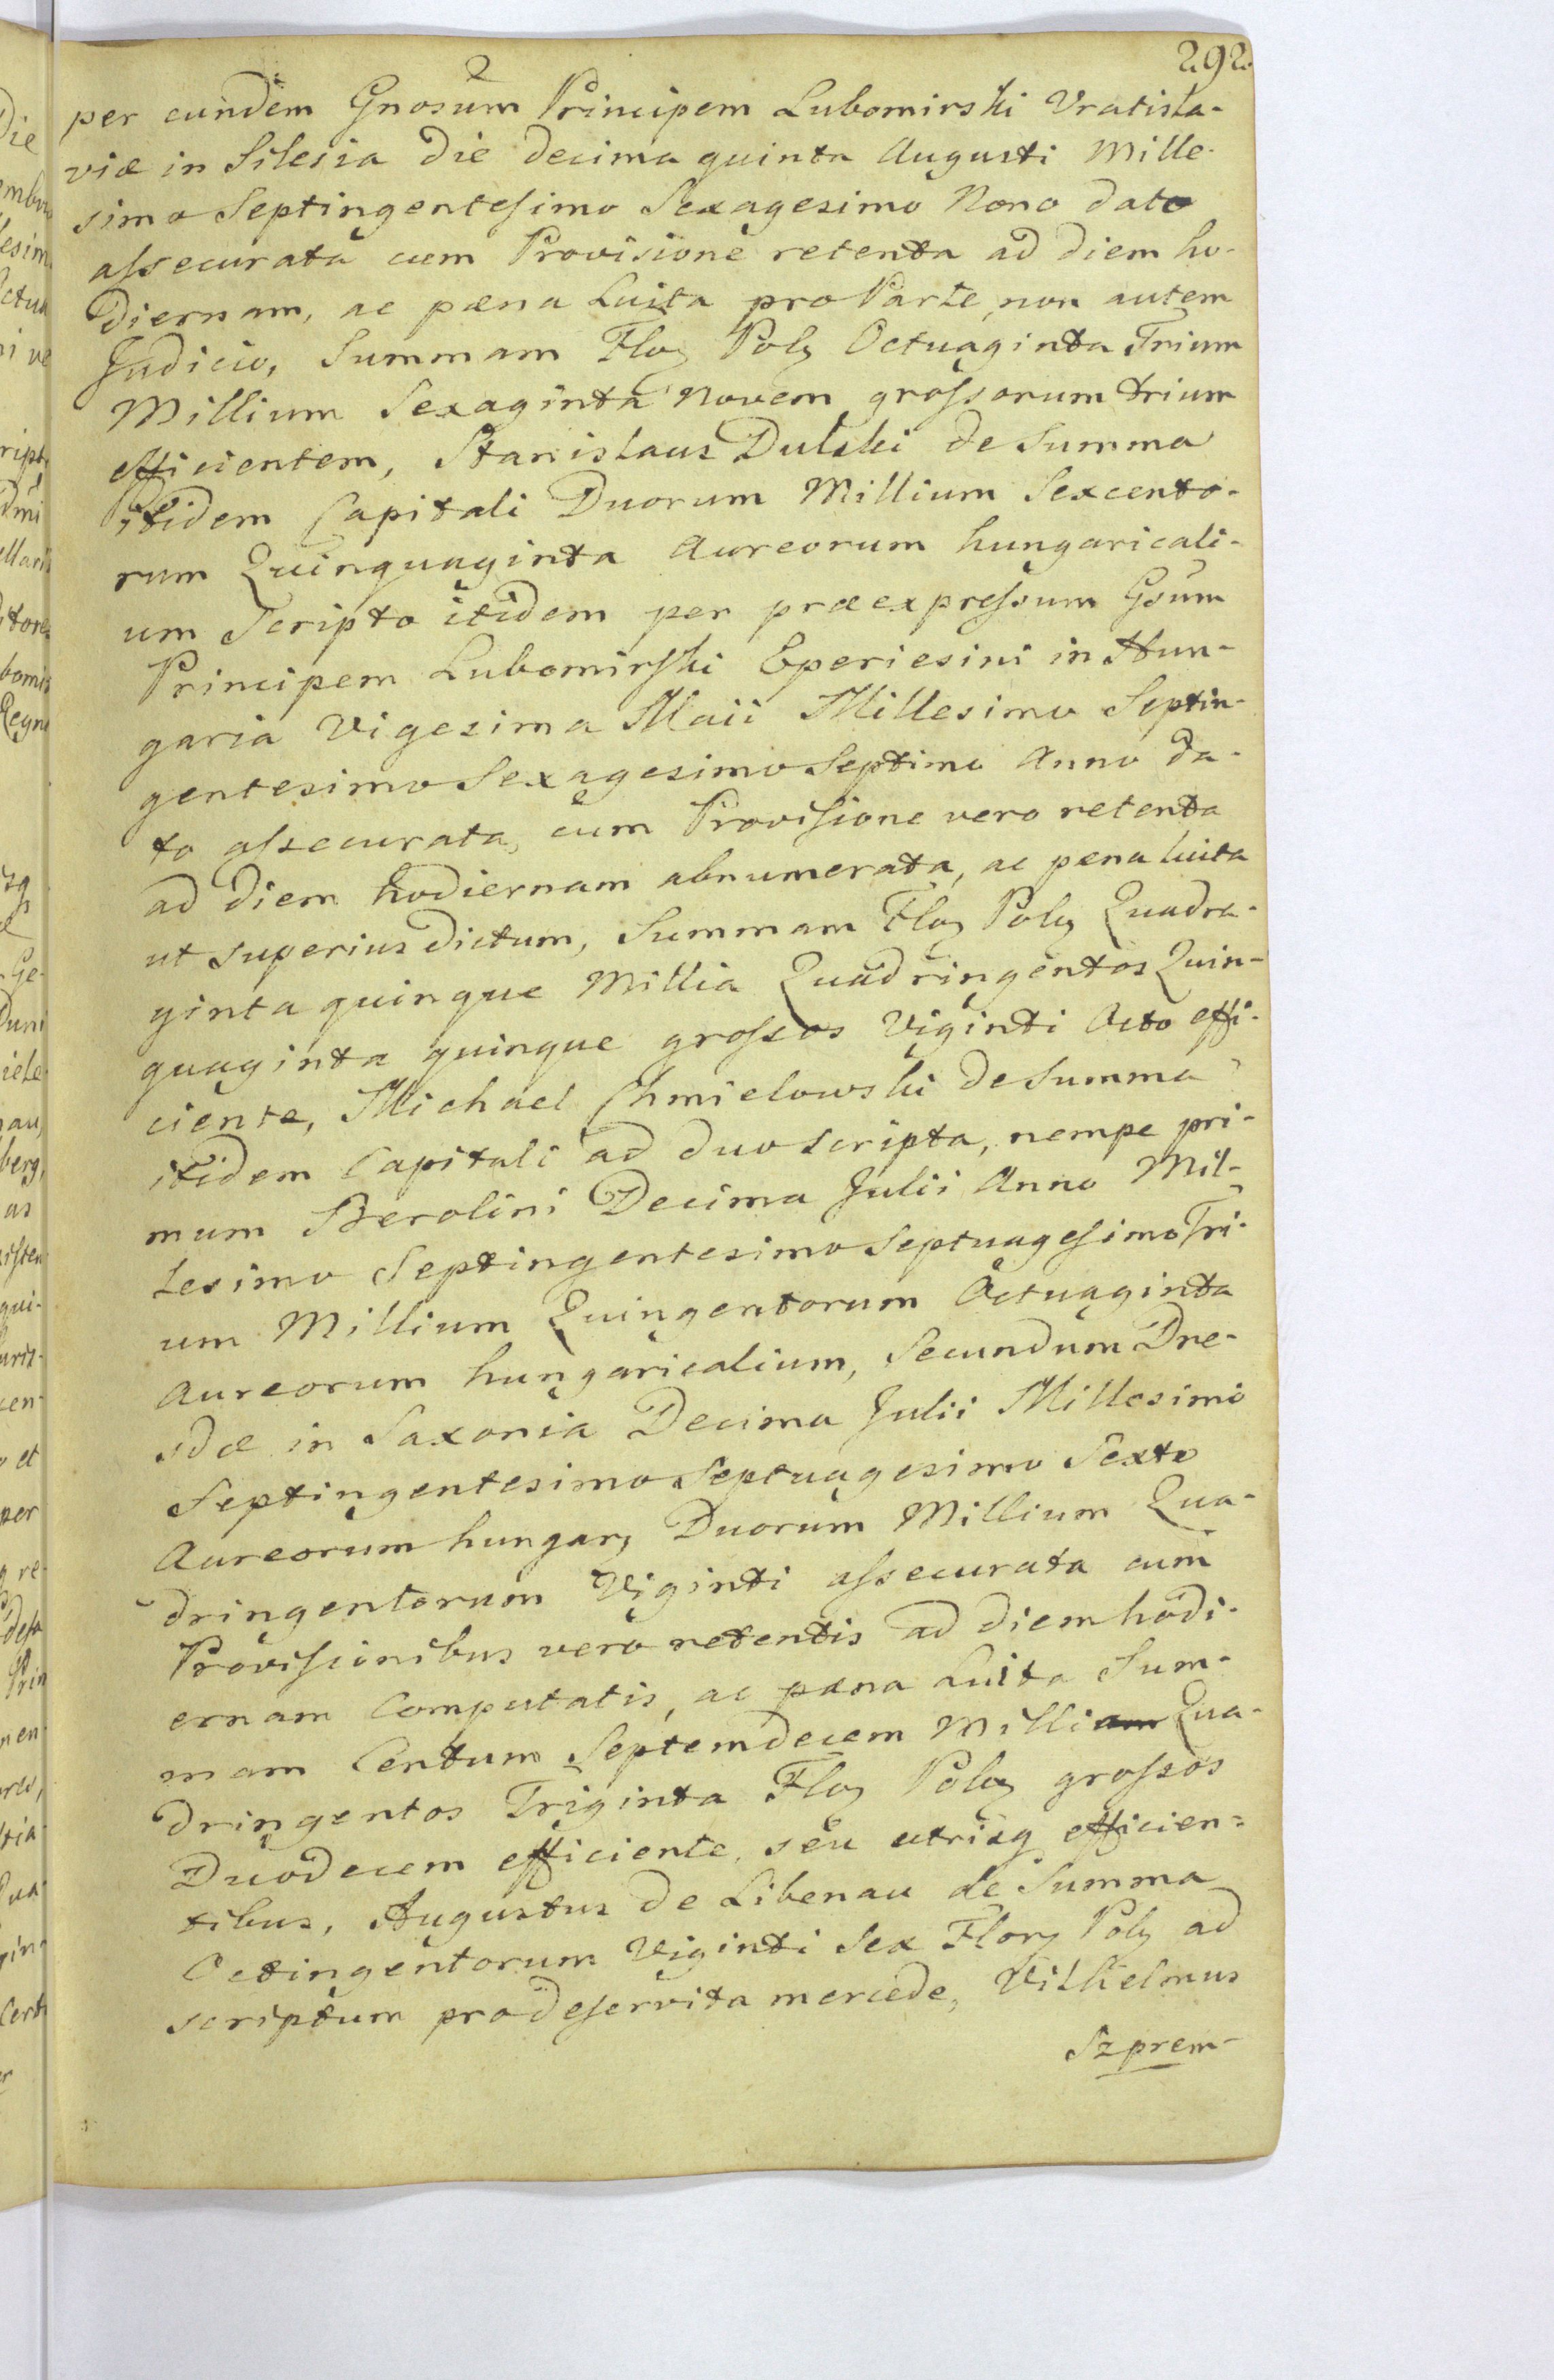 292.
2
per eundem Gnosum Principem Lubomirski Vratisla-
viæ in Silesia die decima quinta Augusti Mille-
simo Septingentesimo Sexagesimo Nono dato
assecurata cum Provisione retenta ad diem ho-
diernam, ac pæna Luita pro Parte, non autem
Judicio, Summam Flo Pol Octuaginta Trium
Millium Sexaginta Novem grossorum trium
efficientem, Stanislaus Dulski de Summa
itidem Capitali Duorum Millium Sexcento-
rum Quinquaginta Aureorum hungaricali-
um Scripto itidem per præexpressum Gsum
Principem Lubomirski Eperiesini in Hun-
garia Vigesima Maii Millesimo Septin-
gentesimo Sexagesimo Septimo Anno da-
to assecurata, cum Provisione vero retenta
ad diem hodiernam abnumerata, ac pæna luita
ut superius dictum, Summam Flo Pol Quadra-
ginta quinque Millia Quadringentos Quin-
quaginta quinque grossos Viginti Octo effi-
ciente, Michael Chmielowski de Summa
itidem Capitali ad duo scripta, nempe pri-
mum Berolini Decima Julii Anno Mil-
lesimo Septingentesimo Septuagesimo Tri-
um Millium Quingentorum Octuaginta
Aureorum hungaricalium, Secundum Dre-
sdæ in Saxonia Decima Julii Millesimo
Septingentesimo Septuagesimo Sexto
Aureorum hungar Duorum Millium Qua-
dringentorum Viginti assecurata cum
Provisionibus vero retentis ad diem hodi-
ernam Computatis, ac pæna Luita Sum-
mam Centum Septemdecem Milliam Qua-
dringentos Triginta Flo Pol grossos
Duodecem efficiente, seu utrisq efficien-
tibus, Augustus de Libenau de Summa
Octingentorum Viginti Sex Flor Pol ad
scriptum pro deservita mercede, Vilhelmus
Szprem-